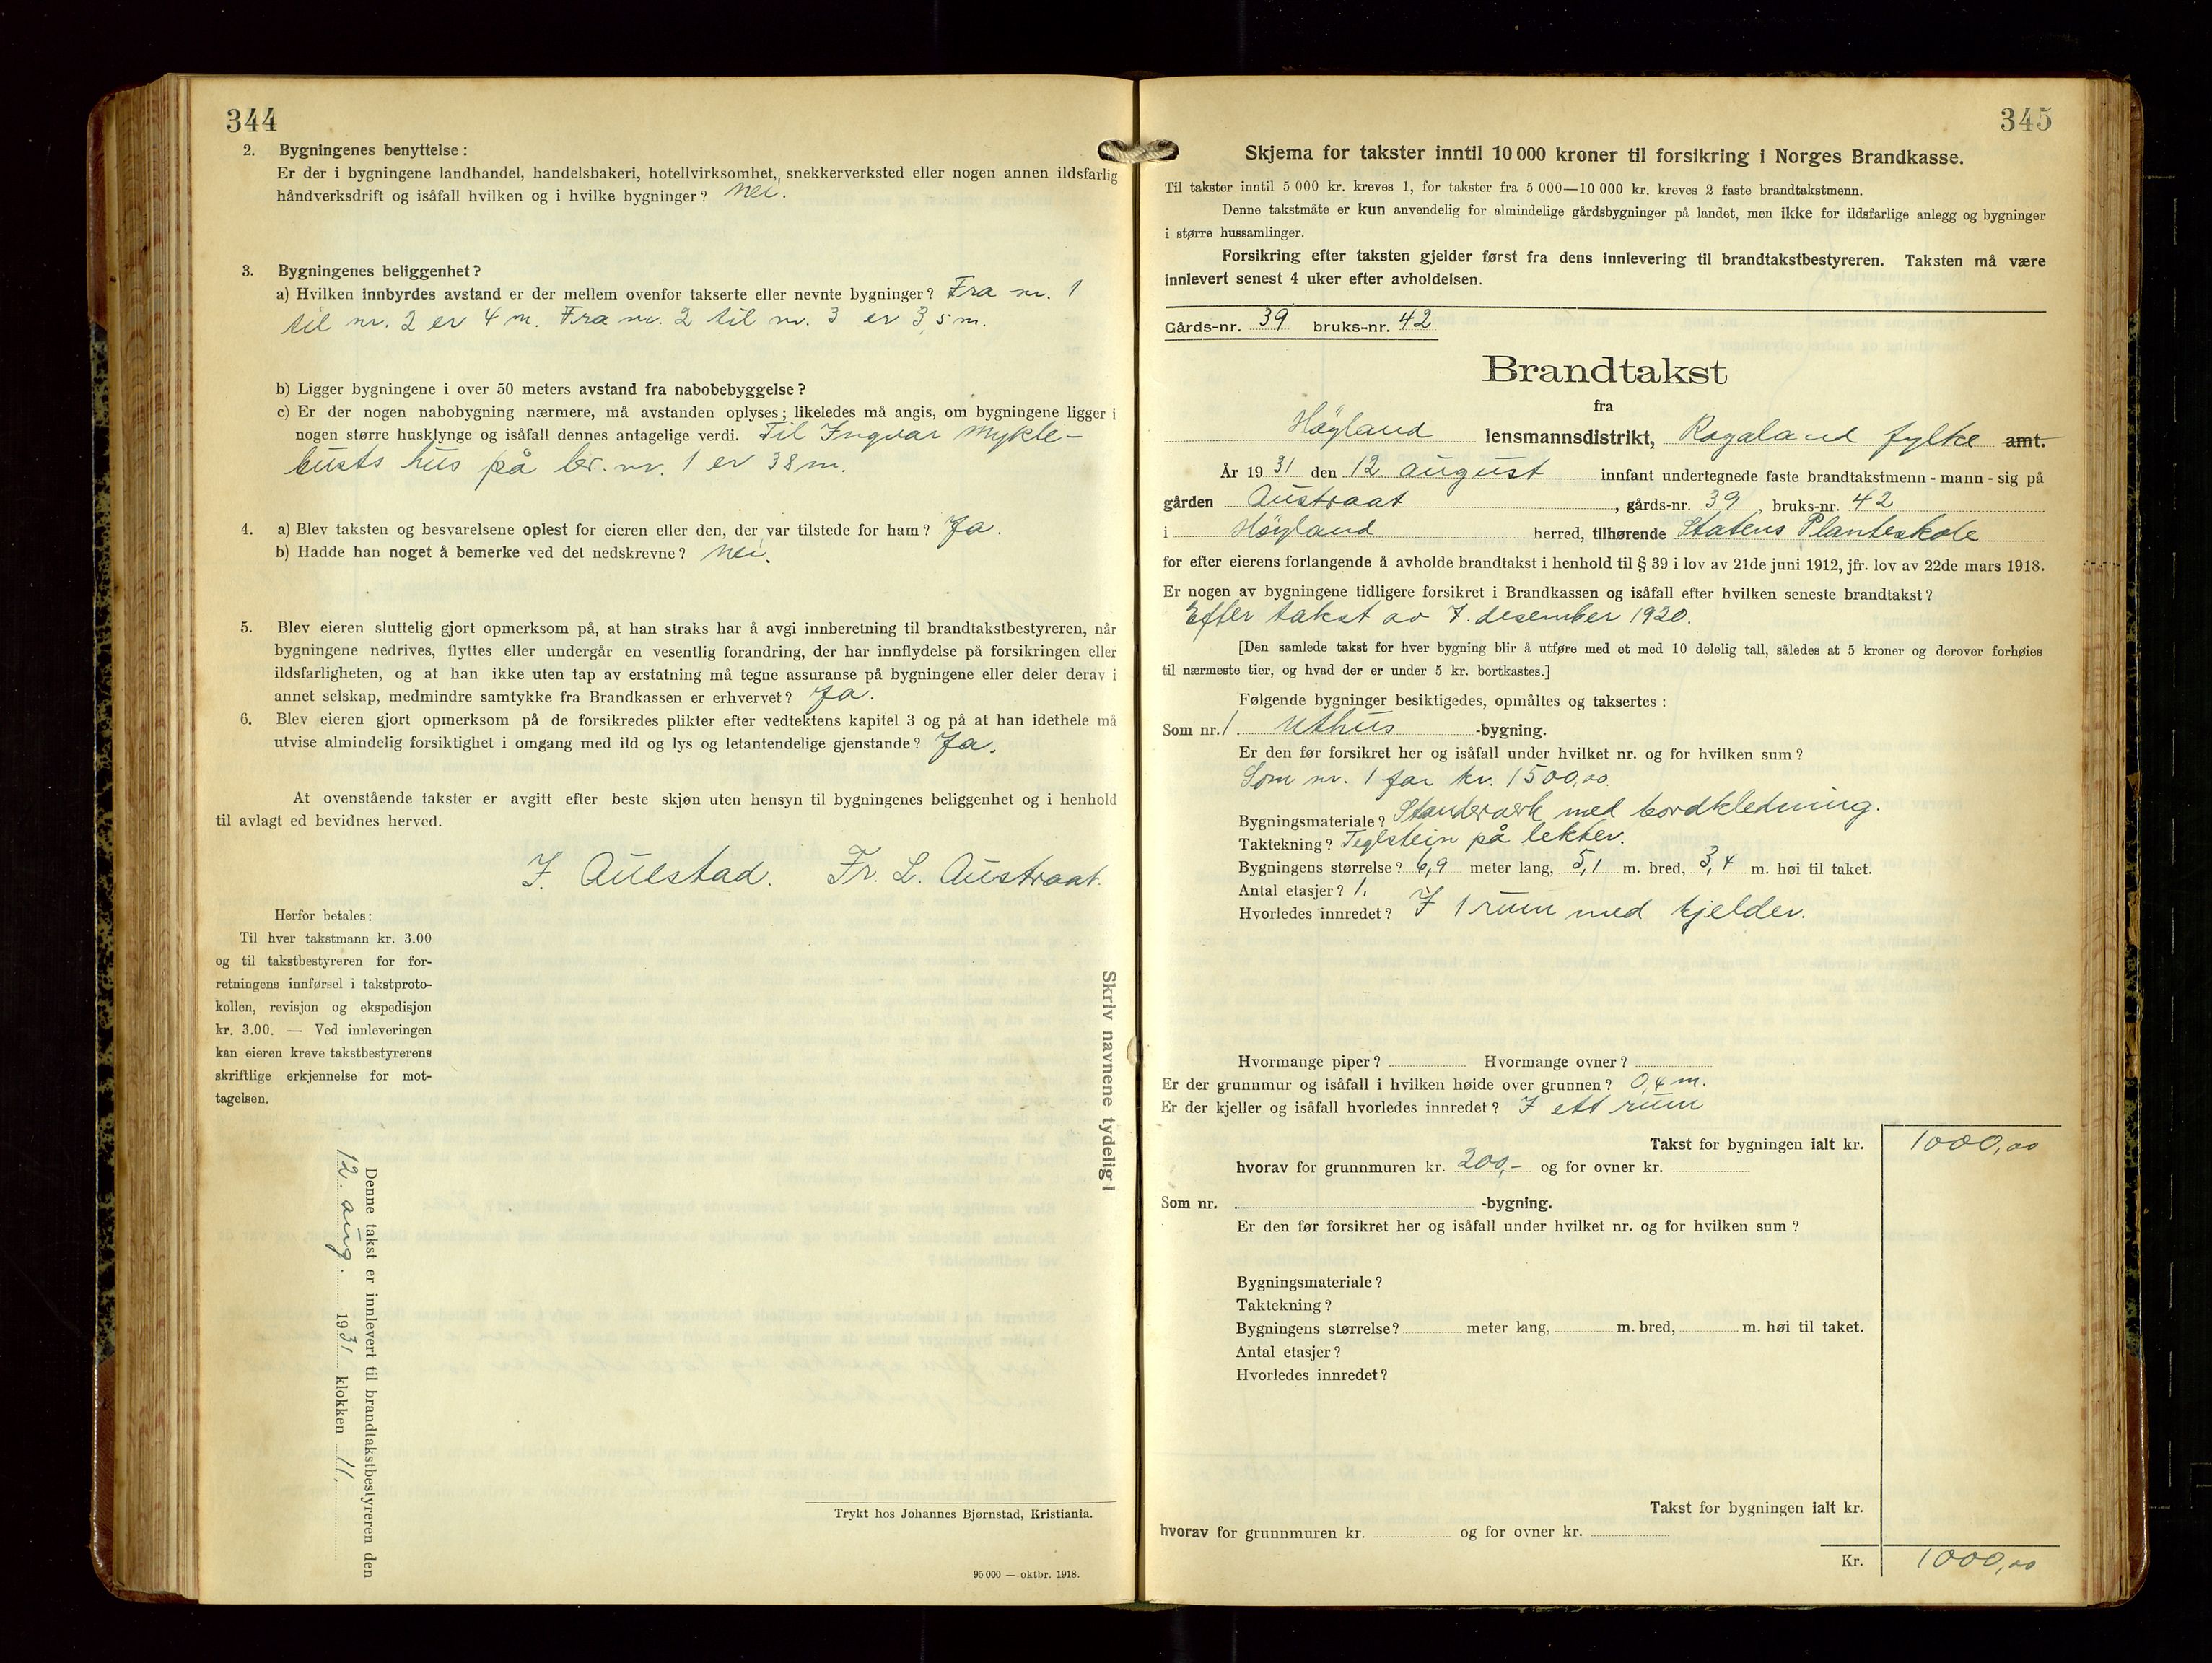 344
2. Bygningenes benyttelse:
Er der i bygningene landhandel, handelsbakeri, hotellvirksomhet, snekkerverksted eller nogen annen ildsfarlig
håndverksdrift og isåfall hvilken og i hvilke bygninger? Nei.
3. Bygningenes beliggenhet?
a) Hvilken innbyrdes avstand er der mellem ovenfor takserte eller nevnte bygninger? Fra nr. 1
til nr. 2 er 4 m. Fra nr. 2 til nr. 3 er 3,5 m.
b) Ligger bygningene i over 50 meters avstand fra nabobebyggelse?
c) Er der nogen nabobygning nærmere, må avstanden oplyses; likeledes må angis, om bygningene ligger i
nogen større husklynge og isåfall dennes antagelige verdi. Til Ingvar Mykle-
busts hus på br. nr. 1 er 38 m.
4. a) Blev taksten og besvarelsene oplest for eieren eller den, der var tilstede for ham? Ja.
b) Hadde han noget å bemerke ved det nedskrevne? Nei.
5. Blev eieren sluttelig gjort opmerksom på, at han straks har å avgi innberetning til brandtakstbestyreren, når
bygningene nedrives, flyttes eller undergår en vesentlig forandring, der har innflydelse på forsikringen eller
ildsfarligheten, og at han ikke uten tap av erstatning må tegne assuranse på bygningene eller deler derav i
annet selskap, medmindre samtykke fra Brandkassen er erhvervet? Ja.
6. Blev eieren gjort opmerksom på de forsikredes plikter efter vedtektens kapitel 3 og på at han idethele må
utvise almindelig forsiktighet i omgang med ild og lys og letantendelige gjenstande? Ja.
At ovenstående takster er avgitt efter beste skjøn uten hensyn til bygningenes beliggenhet og i henhold
til avlagt ed bevidnes herved.
J. Aulstad. Fr. L. Austraat.
Herfor betales:
Til hver takstmann kr. 3.00
og til takstbestyreren for for-
retningens innførsel i takstproto-
kollen, revisjon og ekspedisjon
kr. 3.00. — Ved innleveringen
kan eieren kreve takstbestyrerens
skriftlige erkjennelse for mot-
tagelsen.
Skriv navnene tydelig!
Denne takst er innlevert til brandtakstbestyreren den
12. aug. 1931 klokken 11.
Trykt hos Johannes Bjørnstad, Kristiania.
95 000 — oktbr. 1918.
345
Skjema for takster inntil 10 000 kroner til forsikring i Norges Brandkasse.
Til takster inntil 5 000 kr. kreves 1, for takster fra 5 000—10 000 kr. kreves 2 faste brandtakstmenn.
Denne takstmåte er kun anvendelig for almindelige gårdsbygninger på landet, men ikke for ildsfarlige anlegg og bygninger
i større hussamlinger.
Forsikring efter taksten gjelder først fra dens innlevering til brandtakstbestyreren. Taksten må være
innlevert senest 4 uker efter avholdelsen.
Gårds-nr. 39 bruks-nr. 42
Brandtakst
fra
Høyland lensmannsdistrikt, Rogaland fylke amt.
År 1931 den 12. august innfant undertegnede faste brandtakstmenn - mann - sig på
gården Austraat, gårds-nr. 39, bruks-nr. 42
i Høyland herred, tilhørende Statens Planteskole
for efter eierens forlangende å avholde brandtakst i henhold til § 39 i lov av 21de juni 1912, jfr. lov av 22de mars 1918.
Er nogen av bygningene tidligere forsikret i Brandkassen og isåfall efter hvilken seneste brandtakst?
Efter takst av 7. desember 1920.
[Den samlede takst for hver bygning blir å utføre med et med 10 delelig tall, således at 5 kroner og derover forhøies
til nærmeste tier, og hvad der er under 5 kr. bortkastes.]
Følgende bygninger besiktigedes, opmåltes og taksertes:
Som nr. 1 Uthus -bygning.
Er den før forsikret her og isåfall under hvilket nr. og for hvilken sum?
Som nr. 1 for kr. 1500,00
Bygningsmateriale? Standerverk med bordkledning.
Taktekning? Teglstein på lekter.
Bygningens størrelse? 6,9 meter lang, 5,1 m. bred, 3,4 m. høi til taket.
Antal etasjer? 1.
Hvorledes innredet? I 1 rum med kjelder.
Hvormange piper? Hvormange ovner?
Er der grunnmur og isåfall i hvilken høide over grunnen? 0,4 m.
Er der kjeller og isåfall hvorledes innredet? I ett rum
Takst for bygningen ialt kr. 1000,00
hvorav for grunnmuren kr. 200,- og for ovner kr.
Som nr. -bygning.
Er den før forsikret her og isåfall under hvilket nr. og for hvilken sum?
Bygningsmateriale?
Taktekning?
Bygningens størrelse? meter lang, m. bred, m. høi til taket.
Antal etasjer?
Hvorledes innredet?
Takst for bygningen ialt kr.
hvorav for grunnmuren kr. og for ovner kr.
Kr. 1000,00